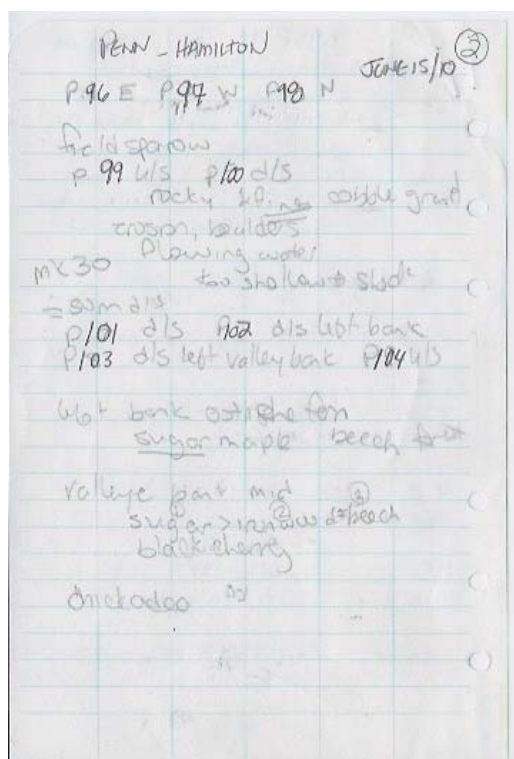 PENN - HAMILTON
JUNE 15/10 ③
P.96 E P97 W P98 N
field sparow
P 99 u/s P100 d/s
rocky cobble
erosion, boulders
flowing water
too shallow
MX30
P101 d/s P102 d/s left bank
P103 d/s left valley bank P104 u/s
left bank fern
sugar maple beech
valleye bank mid
① ② ③
sugar > ironwood = beech
black cherry
chickadee